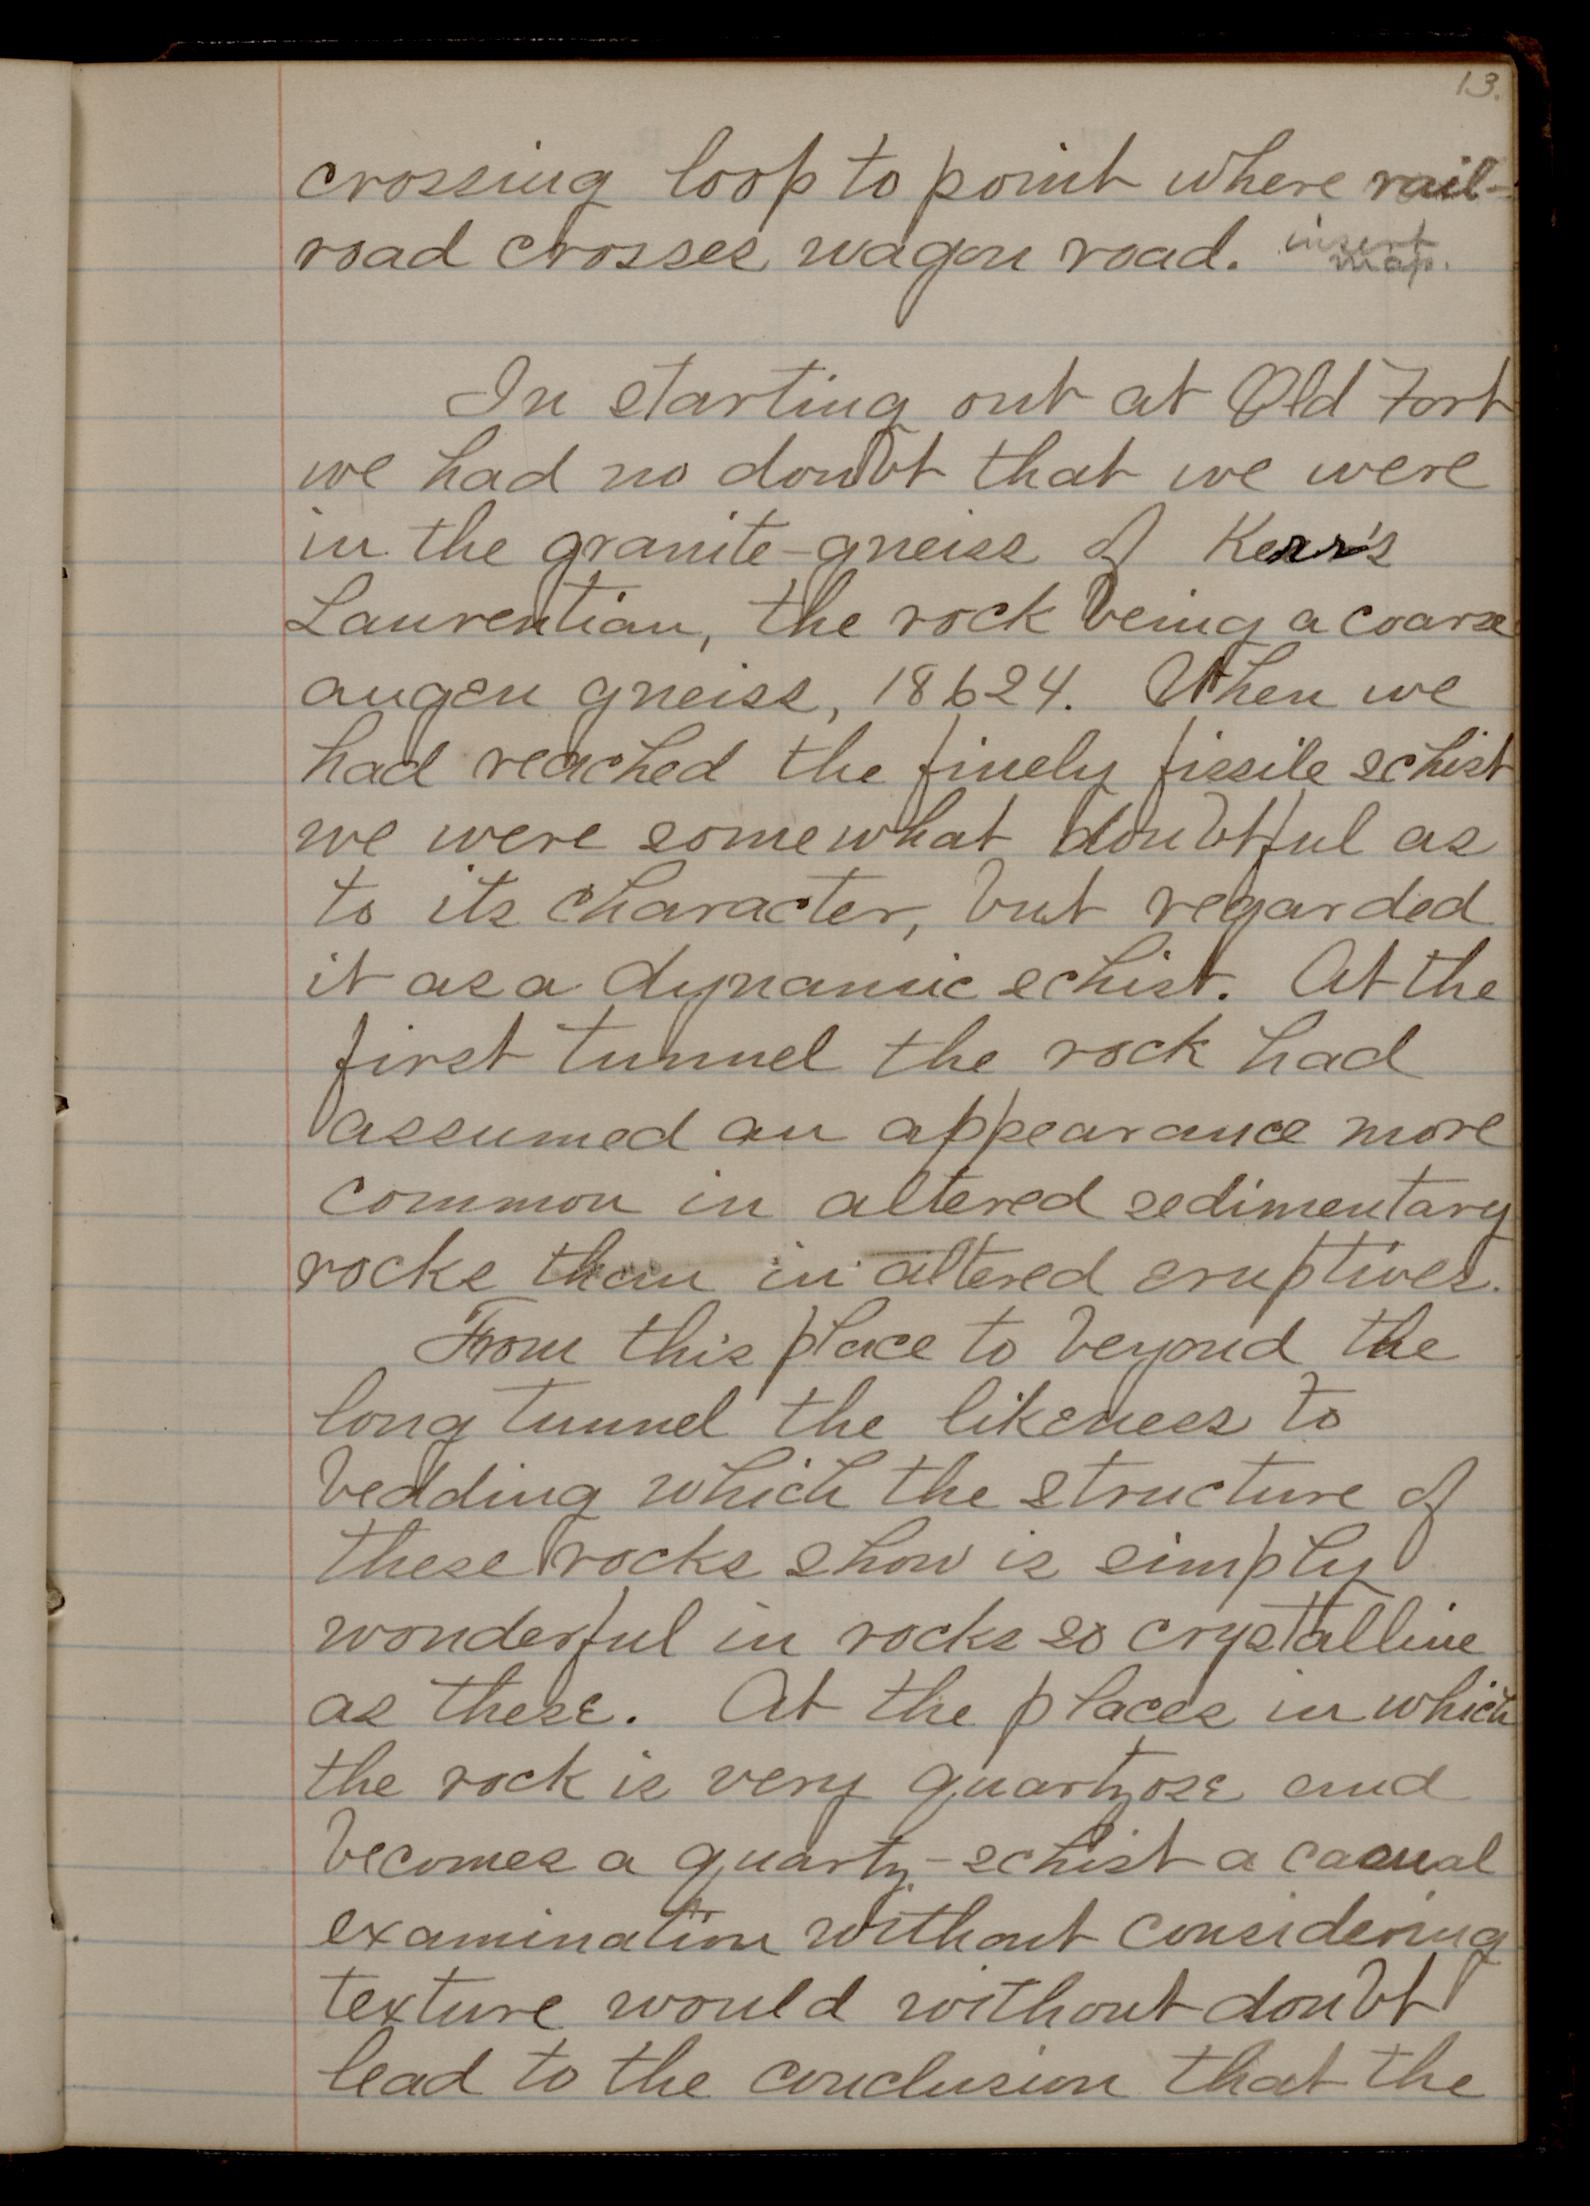 13.
crossing loop to point where rail-
road crosses wagon road. insert
map.
In starting out at Old Fort
we had no doubt that we were
in the granite-gneiss of Kerr's
Laurentian, the rock being a coarse
augen gneiss, 18624. When we
had reached the finely fissile schist
we were somewhat doubtful as
to its character, but regarded
it as a dynamic schist. At the
first tunnel the rock had
assumed an appearance more
common in altered sedimentary
rocks than in altered eruptives.
From this place to beyond the
long tunnel the likeness to
bedding which the structure of
these rocks show is simply
wonderful in rocks so crystalline
as these. At the places in which
the rock is very quartzose and
becomes a quartz-schist a casual
examination without considering
texture would without doubt
lead to the conclusion that the